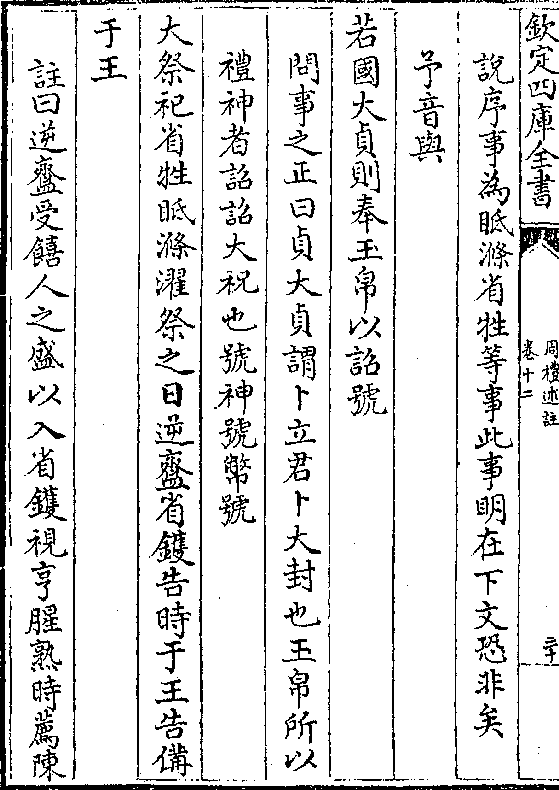 欽定四庫全書
周禮述註
卷十二
二十
說序事為眡滌省牲等事此事明在下文恐非矣
予音與
若國大貞則奉玉帛以詔號
問事之正曰貞大貞謂卜立君卜大封也玉帛所以
禮神者詔詔大祝也號神號幣號
大祭祀省牲眡滌濯祭之日逆齍省鑊告時于王告備
于王
註曰逆齍受饎人之盛以入省鑊視亨腥熟時薦陳